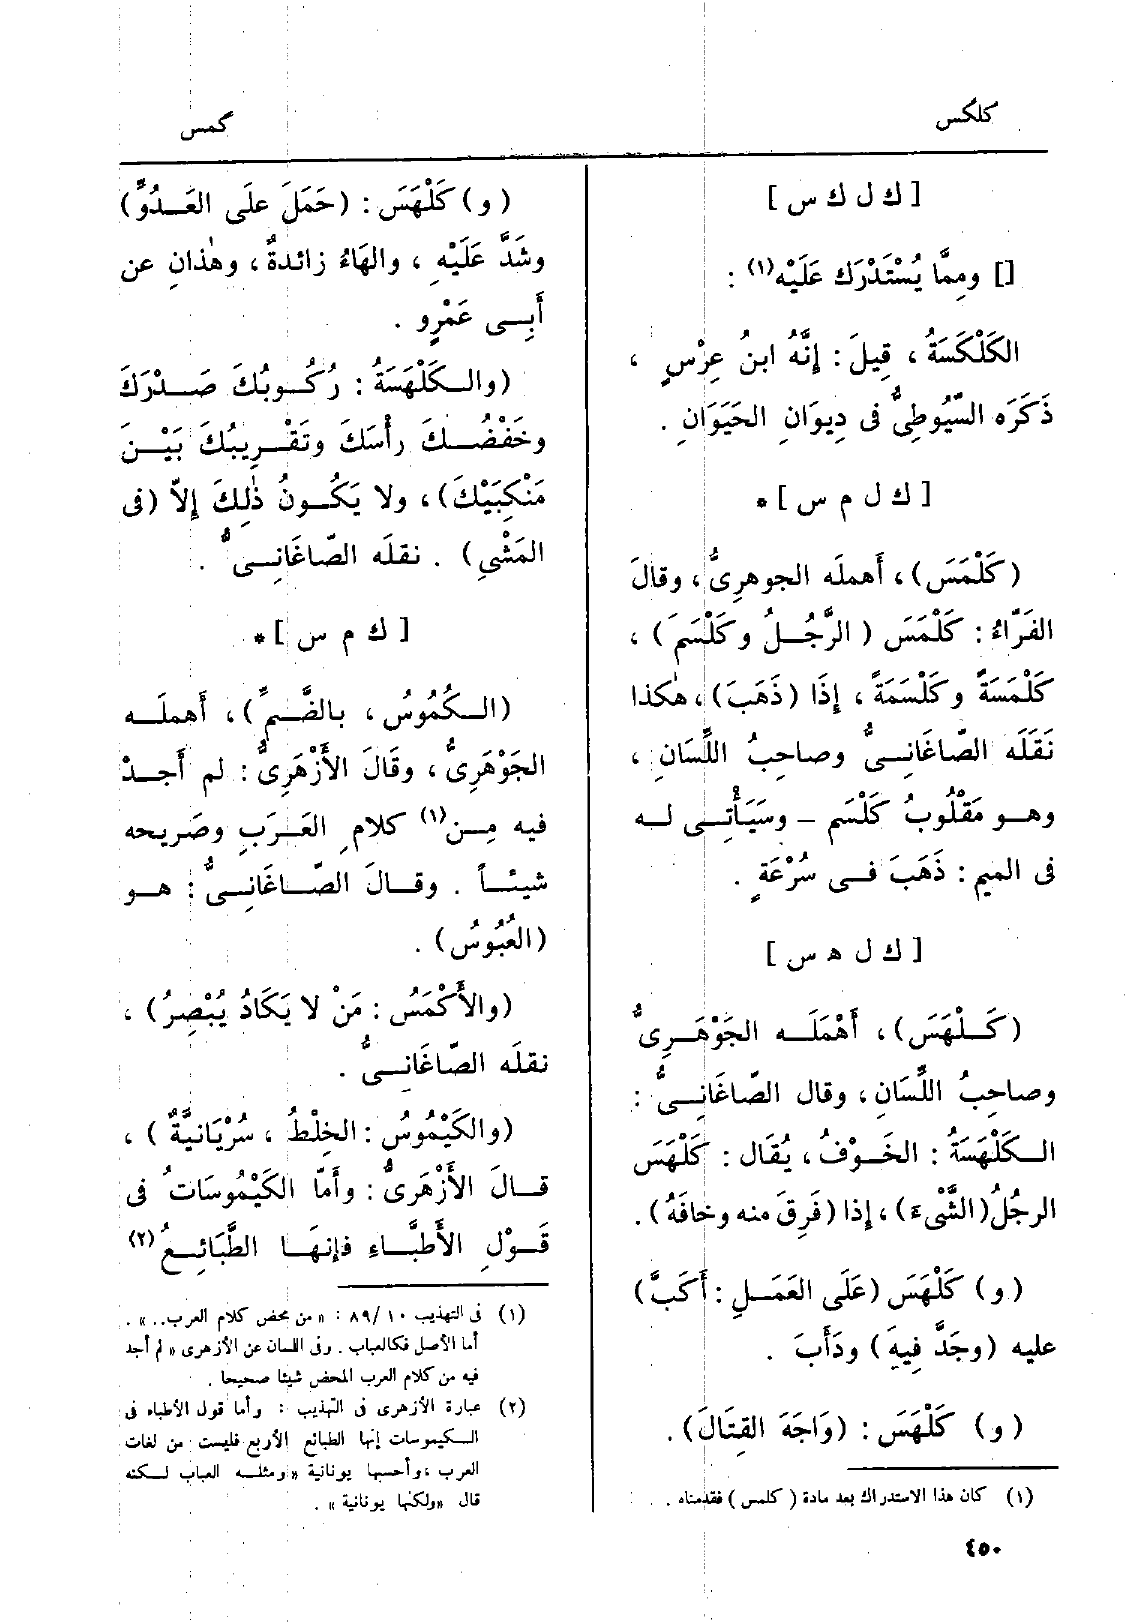 كلكس
كمس
[ ك ل ك س ]
[] ومِمّا يُسْتَدْرَك عَلَيْه(١) :
الكَلْكَسَةُ ، قِيلَ : إِنَّهُ ابنُ عِرْسٍ ،
ذَكَرَه السّيُوطِىُّ فى دِيوَانِ الحَيَوَانِ .
[ ك ل م س ] *
(كَلْمَسَ) ، أَهملَه الجوهرِىُّ ، وقالَ
الفَرّاءُ : كَلْمَسَ ( الرَّجُلُ وكَلْسَمَ ) ،
كَلْمَسَةً وكَلْسَمَةً ، إِذَا (ذَهَبَ) ، هٰكذا
نَقَلَه الصّاغَانِىُّ وصاحِبُ اللِّسَانِ ،
وهو مَقْلُوبُ كَلْسَم – وسَيَأْتِى له
فى الميم : ذَهَبَ فى سُرْعَةٍ .
[ ك ل ه س ]
(كَلْهَسَ) ، أَهْمَلَه الجَوْهَرِىُّ
وصاحِبُ اللِّسَانِ ، وقال الصّاغَانِىُّ :
الكَلْهَسَةُ : الخَوْفُ ، يُقَال : كَلْهَسَ
الرجُلُ (الشَّىْءَ) ، إِذا (فَرِقَ منه وخافَهُ) .
( و ) كَلْهَسَ (عَلَى العَمَلِ : أَكَبَّ)
عليه (وجَدَّ فِيهِ ) ودَأَبَ .
( و ) كَلْهَسَ : (وَاجَهَ القِتَالَ) .
(١) كان هذا الاستدراك بعد مادة ( كلمس ) فقدمناه .
( و ) كَلْهَسَ : (حَمَلَ على العَدُوِّ)
وشَدَّ عَلَيْهِ ، والهَاءُ زائدةٌ ، وهٰذانِ عن
أَبِى عَمْرٍو .
(والكَلْهَسَةُ : رُكُوبُكَ صَدْرَكَ
وخَفْضُكَ رأْسَكَ وتَقْرِيبُكَ بَيْنَ
مَنْكِبَيْكَ) ، ولا يَكُونُ ذٰلِكَ إِلاّ (فى
المَشْىِ) . نقلَه الصّاغَانِىُّ .
[ ك م س ] *
(الكُمُوسُ ، بالضَّمِّ) ، أَهملَه
الجَوْهَرِىُّ ، وقَالَ الأَزْهَرِىُّ : لم أَجدْ
فيه مِن(١) كلامِ العَرَبِ وصَرِيحه
شيئاً . وقالَ الصّاغَانِىُّ : هو
(العُبُوسُ) .
(والأَكْمَسُ : مَنْ لا يَكَادُ يُبْصِرُ) ،
نقلَه الصّاغَانِىُّ .
(والكَيْمُوسُ : الخِلْطُ ، سُرْيَانيَّةٌ ) ،
قالَ الأَزْهَرِىُّ : وأَمّا الكَيْمُوسَاتُ فى
قَوْلِ الأَطِبّاءِ فإنهَا الطَّبَائِعُ(٢)
(١) فى التهذيب ١٠ /٨٩ : « من محض كلام العرب.. » .
أما الأصل فكالعباب . وفى اللسان عن الأزهرى « لم أجد
فيه من كلام العرب المحض شيئا صحيحا .
(٢) عبارة الأزهرى فى التهذيب : وأما قول الأطباء فى
الكيموسات إنها الطبائع الأربع فليست من لغات
العرب ، وأحسبها يونانية « ومثله العباب لكنه
قال «ولكنها يونانية » .
٤٥٠